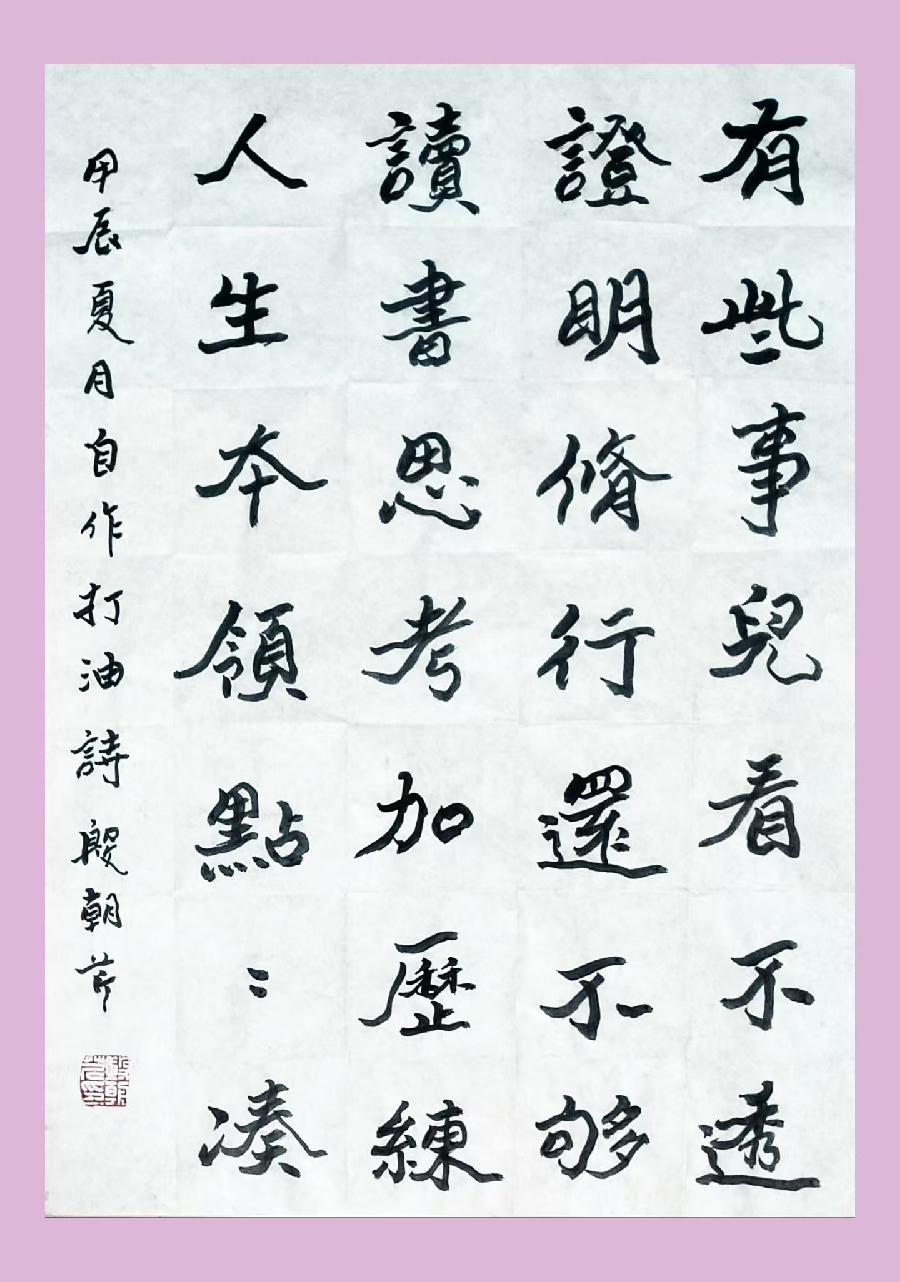 有些事兒看不透
證明脩行還不够
讀書思考加歷練
人生本領點〻凑
甲辰夏月自作打油詩殷朝芹